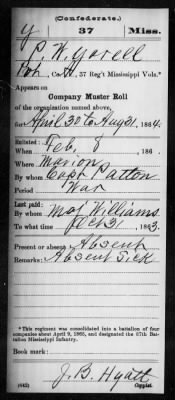 (Confederate.)
Y 37 Miss.
P. W. Yorell
Pvt, Co. H, 37 Reg't Mississippi Vols.*
Appears on
Company Muster Roll
of the organization named above,
for April 30 to Aug 31, 1864.
Enlisted:
When Feb, 8, 186 .
Where Marion
By whom Capt Patton
Period War
Last paid:
By whom Maj Williams
To what time Oct 31, 1863.
Present or absent Absent
Remarks: Absent Sick
*This regiment was consolidated into a battalion of four companies about April 9, 1865, and designated the 37th Battalion Mississippi Infantry.
Book mark:
(642) J. B. Hyatt
Copyist.